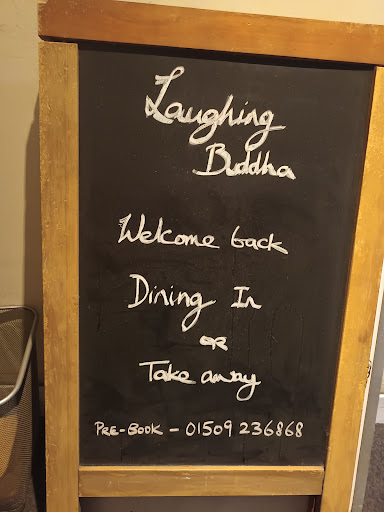 Laughing
Buddha
Welcome back
Dining In
OR
Take away
PRE-BOOK - 01509 236868